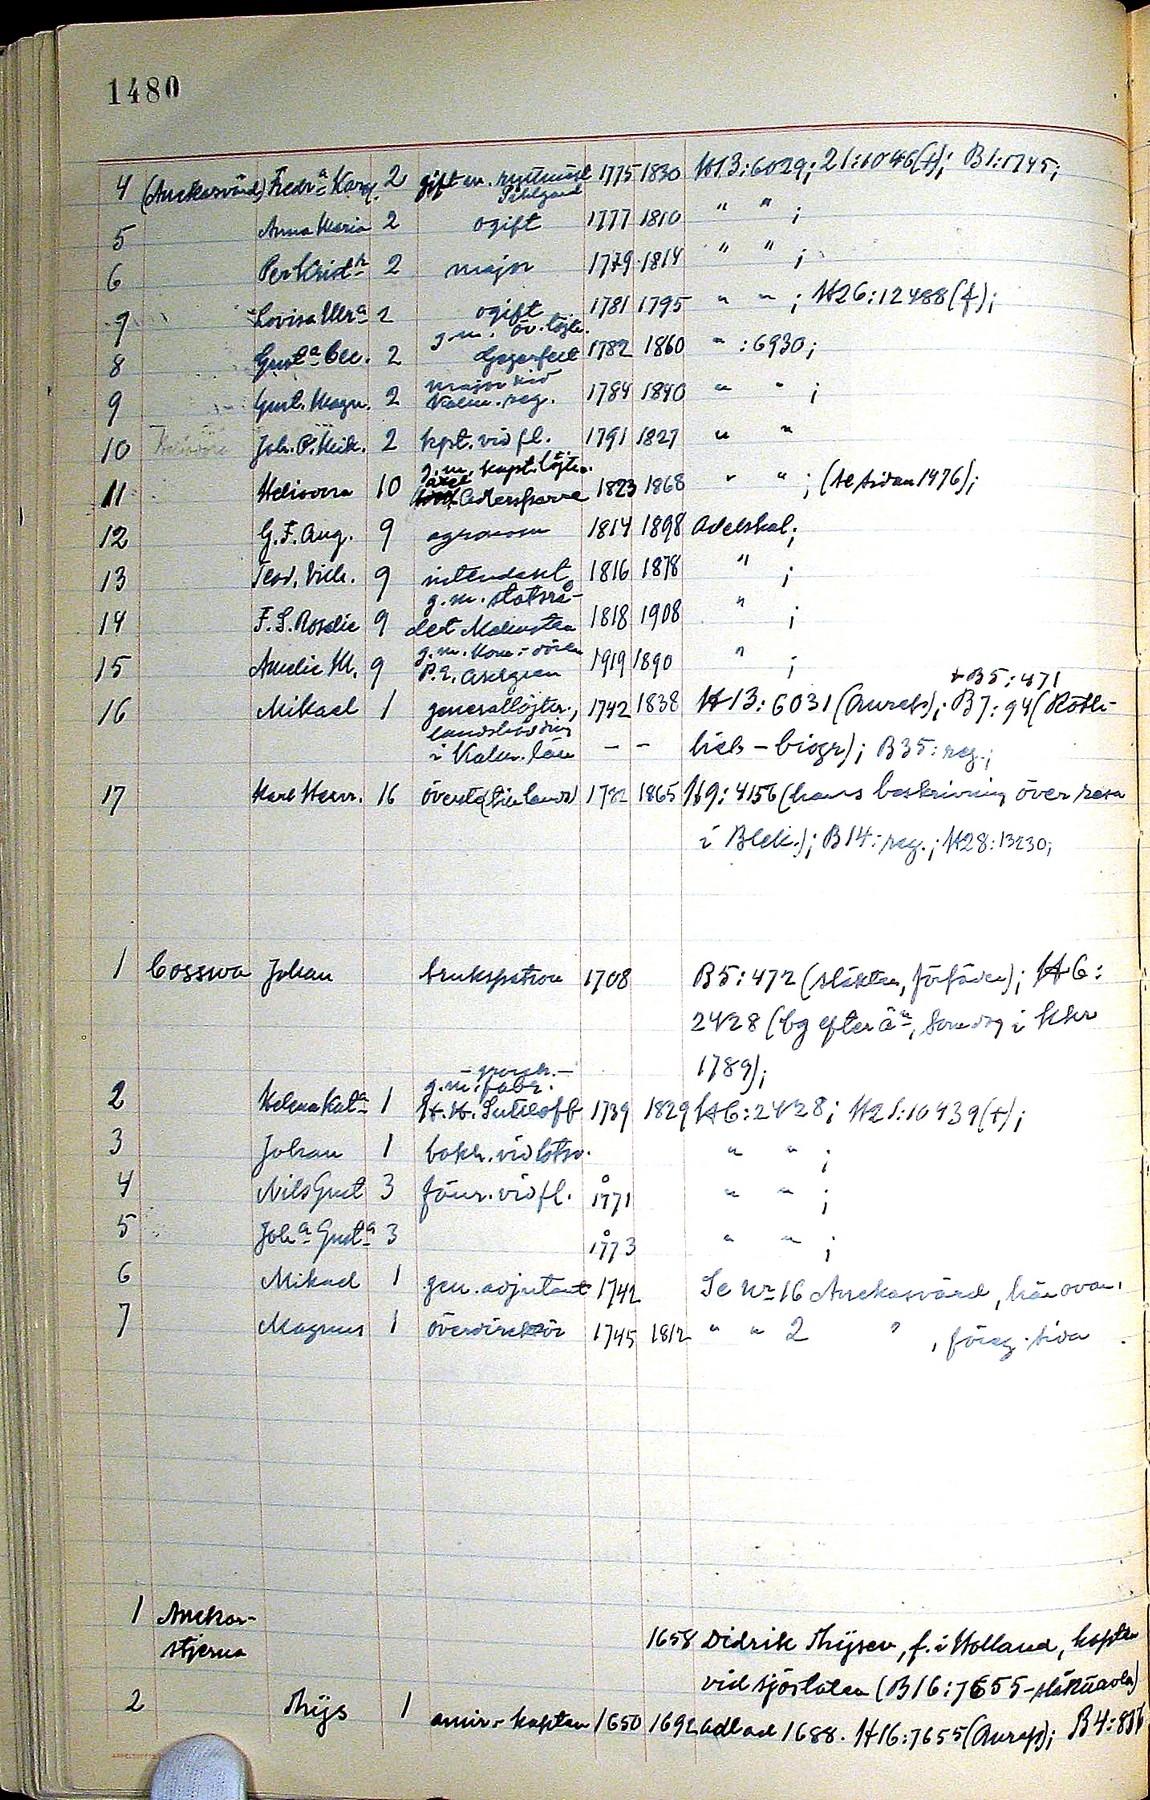 1480
4 (Anckarsvärd) Fredr<u>a</u> Karol. 2 gift m. ryttmäst. 1775 1830 H13:6029; 21:1046(†); B1:1745;
5 Anna Maria 2 ogift 1777 1810 " " ;
6 Per Krist<u>n</u> 2 major 1779 1814 " " ;
7 Lovisa Ulr<u>a</u> 2 ogift 1781 1795 " " ; H26:12488(†);
g.m. öv.löjtn.
8 Gust<u>a</u> Cec. 2 1782 1860 " :6930;
major vid
9 Gust. Magn. 2 Kalm. reg. 1784 1840 " " ;
10 Joh. P. Heik. 2 kpt. vid fl. 1791 1827 " "
g.m. kapt.löjtn.
Axel
11 Heliodora 10 Adlersparre 1823 1868 " " ; (se sidan 1476);
12 G. F. Aug. 9 agronom 1814 1898 Adelskal;
13 Teod. Vilh. 9 intendent 1816 1878 " ;
g.m. statsrå-
14 F. S. Rosalie 9 det Malmsten 1818 1908 " ;
15 Amelie M. 9 P.E. 1919 1890 " ;
+B5:471
16 Mikael 1 generallöjtn., 1742 1838 H13:6031 (Anreps); B7:94 (Röth-
landshövding
i Kalm. län - - lieb-biogr); B35:reg.;
17 Karl Henr. 16 överste 1782 1865 H9:4156 (hans beskrivning över resa
i Blek.); B14:reg.; H28:13230;
1 Cosswa Johan brukspatron 1708 B5:472 (släkten, förfäder); H6:
2428 (bg efter
1789);
g.m. fabr.
2 Helena Kat<u>a</u> 1 1739 1829 H6:2428; H21:10439(†);
3 Johan 1 bokh. vid lotsv. " " ;
4 Nils Gust 3 fänr. vid fl. 1771 " " ;
5 Joh<u>a</u> Gust<u>a</u> 3 1773 " " ;
6 Mikael 1 gen. adjutant 1742 Se Nr 16 Anckarsvärd, här ovan.
7 Magnus 1 överdirektör 1745 1812 " " 2 " , föreg. sida.
1 Anckar-
stjerna 1658 Didrik Thijsen, f. i Holland, kapten
vid sjöstaten (B16:7655-släkttavla)
2 Thijs 1 amir.-kapten 1650 1692 adlad 1688. H16:7655 (Anrep);